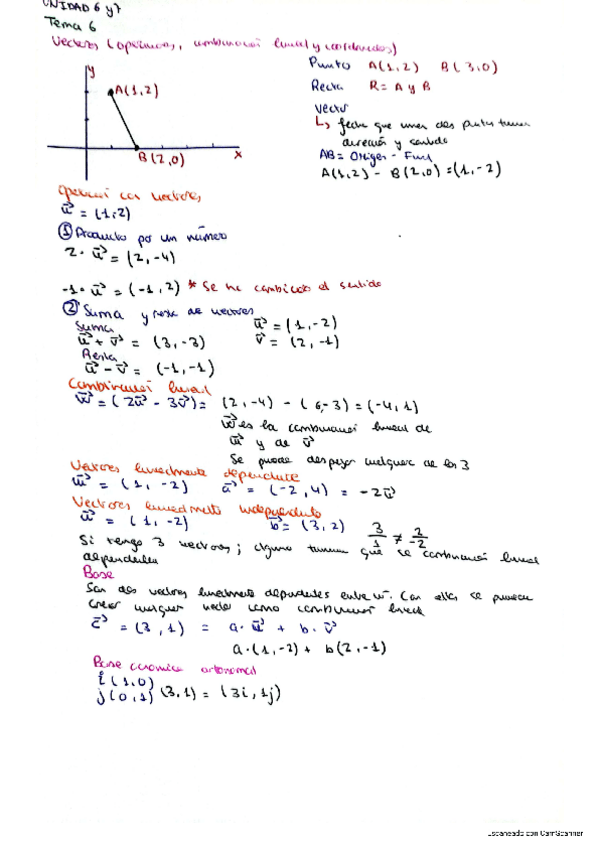 UNIDAD 6 y 7
Tema 6
Vectores (operaciones, combinación lineal y coordenadas)
y
A(1,2)
B(2,0)
x
Punto A(1,2) B(3,0)
Recta R= A y B
Vector
↳ flecha que unen dos puntos tienen
dirección y sentido
AB= Origen - Final
A(1,2) - B(2,0) =(1,-2)
Operación con vectores
u = (1,-2)
① Producto por un número
2· u = (2,-4)
-1· u = (-1,2) * Se ha cambiado el sentido
② Suma y resta de vectores
Suma u = (1,-2)
u + v = (3,-3) v = (2,-1)
Resta
u - v = (-1,-1)
Combinación lineal
w = (2u - 3v)= (2,-4) - (6,-3) = (-4,1)
w es la combinación lineal de
u y de v
Se puede despejar cualquiera de los 3
Vectores linealmente dependiente
u = (1,-2) a = (-2,4) = -2u
Vectores linealmente independiente
u = (1,-2) b = (3,2) 3/1 ≠ 2/-2
Si tengo 3 vectores; alguno tienen que se combinación lineal
dependientes
Base
Son dos vectores linealmente dependientes entre sí. Con ellos se pueden
crear cualquier vector como combinación lineal
c = (3,1) = a·u + b·v
a·(1,-2)+ b(2,-1)
Base canonica ortonormal
i (1,0)
j (0,1) (3,1) = (3i,1j)
Escaneado con CamScanner